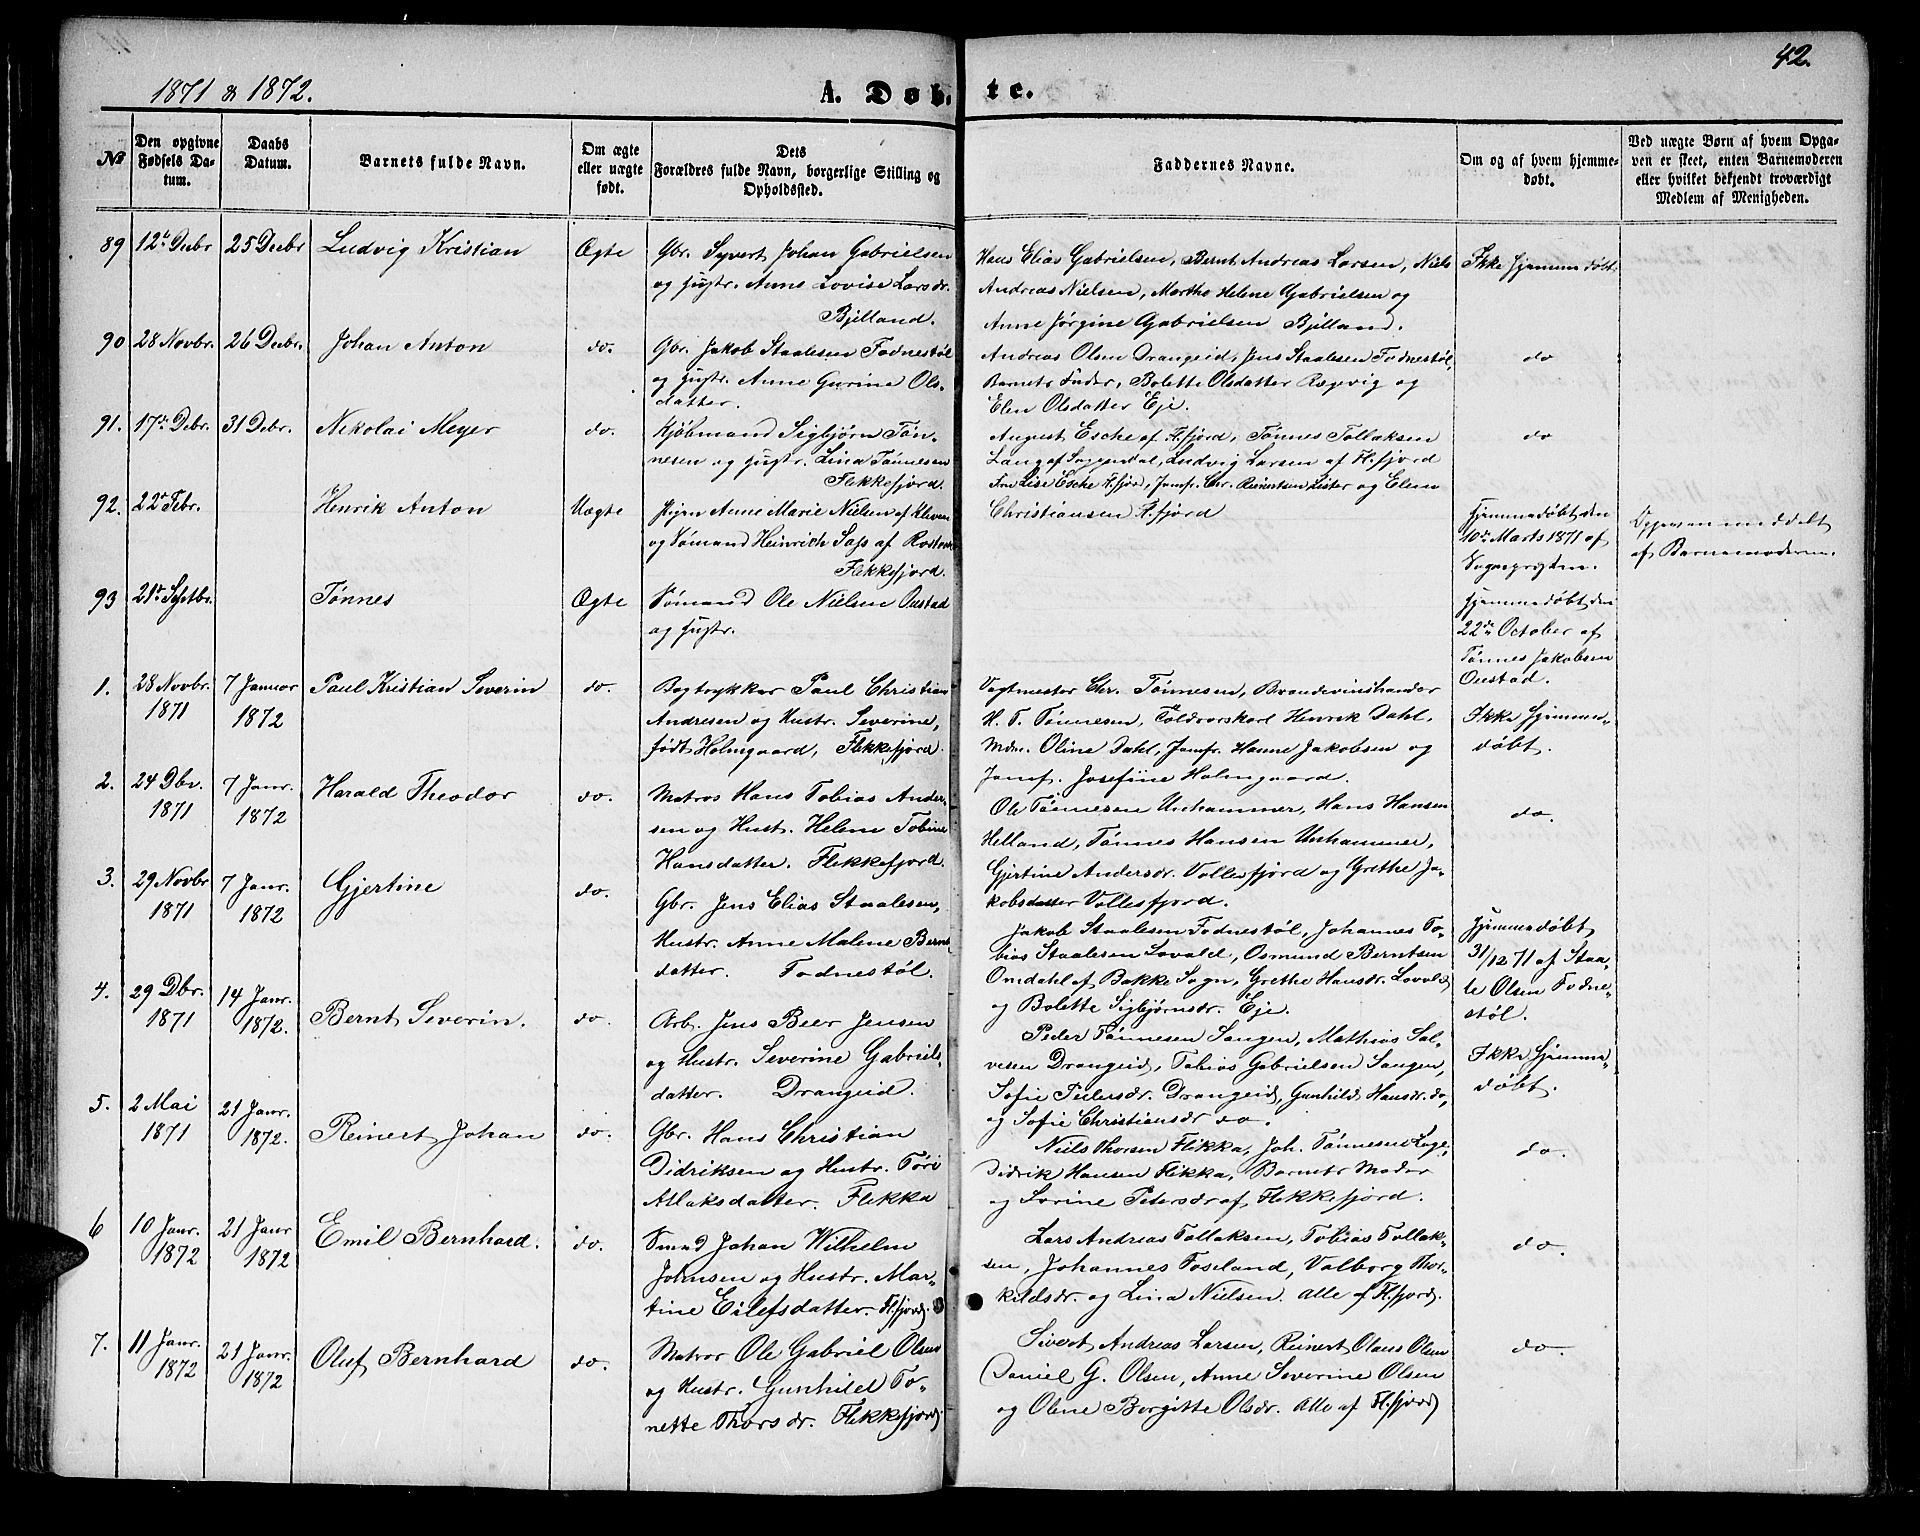 42.
1871 & 1872.
A. Døb-
te.
No
Den opgivne Fødsels Da-tum.
Daabs Datum.
Barnets fulde Navn.
Om ægte eller uægte født.
Dets Forældres fulde Navn, borgerlige Stilling og Opholdssted.
Faddernes Navne.
Om og af hvem hjemme-døbt.
Ved uægte Børn af hvem Opga-ven er skeet, enten Barnemoderen eller hvilket bekjendt troværdigt Medlem af Menigheden.
89 12te Decbr 25 Decbr Ludvig Kristian Ægte Gbr. Syvert Johan Gabrielsen
og Hustr. Anne Lovise Larsdr.
Bjelland.
Hans Elias Gabrielsen, Bernt Andreas Larsen, Niels
Andreas Nielsen, Marthe Helene Gabrielsen og
Anne Jørgine Gabrielsen Bjelland.
Ikke hjemmedøbt
90 28 Novbr. 26 Decbr. Johan Anton do. Gbr. Jakob Staalesen Fodnestøl
og Hustr. Anne Gurine Ols-
datter.
Andreas Olsen Drangeid, Jens Staalesen Fodnestøl,
Barnets Fader, Bolette Olsdatter Ræpevig og
Elen Olsdatter Eje.
do
91. 17de Debr. 31 Debr. Nikolai Meyer do. Kjøbmand Sigbjørn Tøn-
nesen og Hustr. Lina Tønnesen
Flekkefjord.
August Esche af Fl.fjord, Tønnes Tollaksen
Lang af Sogendal, Ludvig Larsen af Fl.fjord
Fru Lise Esche Fl.fjord, Jomfr. Chr. Reinertsen Lister og Elen
Christiansen Fl.fjord
do
92. 22de Febr. Henrik Anton Uægte Pigen Anne Marie Nielsen af Kleven
og Sømand Heinrich Sass af Rostock
Flekkefjord.
Hjemmedøbt den
10de Marts 1871 af
Sognepræsten.
Opgaven meddelt
af Barnemoderen.
93 21de Septbr. Tønnes Ægte Sømand Ole Nielsen Oustad
og Hustr.
Hjemmedøbt den
22de October af
Tønnes Jakobsen
Oustad.
1. 28 Novbr. 1871 7 Januar 1872 Paul Kristian Severin do. Bogtrykker Paul Christian
Andresen og Hustr. Severine,
født Holmgaard, Flekkefjord.
Vagtmester Chr. Tønnesen, Brændevinshandler
H. T. Tønnesen, Toldvorskarl Henrik Dahl,
Mdm. Oline Dahl, Jomfr. Hanne Jakobsen og
Jomf. Josefine Holmgaard.
Ikke hjemme-
døbt.
2. 24 Dbr. 1871 7 Janr. 1872 Harald Theodor do. Matros Hans Tobias Ander-
sen og Hust. Helene Tobine
Hansdatter. Flekkefjord.
Ole Tønnesen Unhammer, Hans Hansen
Helland, Tønnes Hansen Unhammer,
Gjertine Andersdr. Vollesfjord og Grethe Ja-
kobsdatter Vollesfjord.
do.
3. 29 Novbr 1871 7 Janr. 1872 Gjertine do. Gbr. Jens Elias Staalesen,
Hustr. Anne Malene Bernt-
datter. Fodnestøl.
Jakob Staalesen Fodnestøl, Johannes To-
bias Staalesen Lovald, Osmund Berntsen
Omdahl af Bakke Sogn, Grethe Hansdr. Lovald
og Bolette Sigbjørnsdr. Eje.
Hjemmedøbt
31/12 71 af Staa-
le Olsen Fodne-
støl.
4. 29 Dbr. 1871 14 Janr. 1872. Bernt Severin. do. Arb. Jens Beer Jensen
og Hustr. Severine Gabriels-
datter. Drangeid.
Peder Tønnesen Sangen, Mathias Sal-
vesen Drangeid, Tobias Gabrielsen Sangen,
Sofie Pedersdr. Drangeid, Gunhild Hansdr. do,
og Sofie Christiansdr do.
Ikke hjemme-
døbt.
5. 2 Mai 1871 21 Janr. 1872. Reinert Johan do. Gbr. Hans Christian
Didriksen og Hustr. Tøri
Atlaksdatter. Flikka
Niels Thorsen Flikka, Joh. Tønnesen Loge,
Didrik Hansen Flikka, Barnets Moder
og Sorine Petersdr af Flekkefjord.
do.
6 10 Janr. 1872 21 Janr 1872 Emil Bernhard. do. Smed Johan Wilhelm
Johnsen og Hustr. Mar-
tine Eilefsdatter. Fl.fjord.
Lars Andreas Tollaksen, Tobias Tollak-
sen, Johannes Foseland, Valborg Thor-
kildsdr. og Lina Nielsen. Alle af Fl.fjord.
do.
7. 11 Janr. 1872 21 Janr. 1872 Oluf Bernhard do. Matros Ole Gabriel Olsen
og Hustr. Gunhild To-
nette Thorsdr. Flekkefjord.
Sivert Andreas Larsen, Reinert Olaus Olsen
Daniel G. Olsen, Anne Severine Olsen
og Olene Borgitte Olsdr. Alle af Fl.fjord
do.